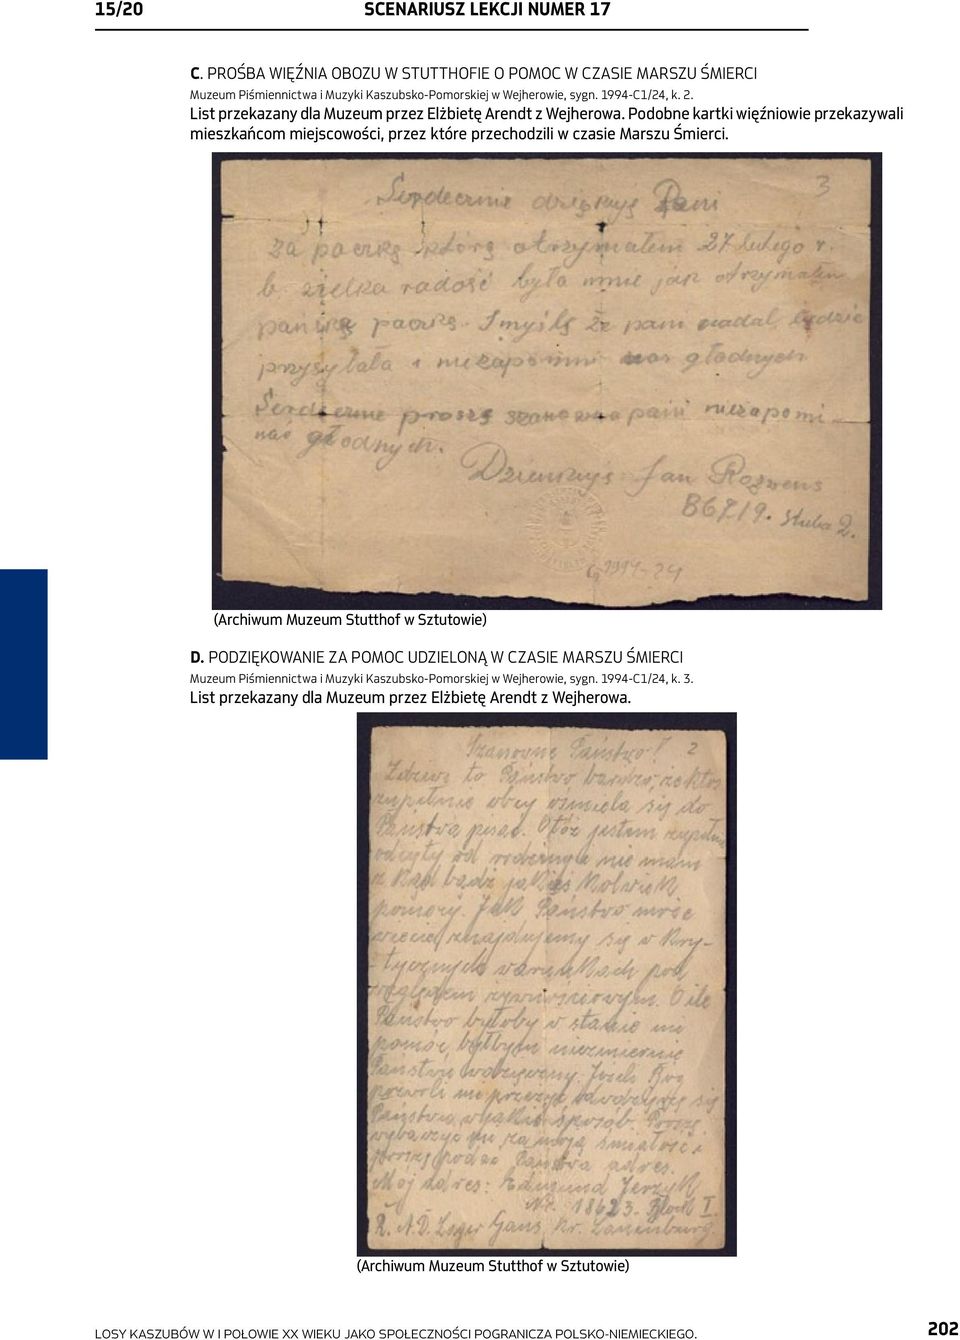 15/20 SCENARIUSZ LEKCJI NUMER 17
C. PROŚBA WIĘŹNIA OBOZU W STUTTHOFIE O POMOC W CZASIE MARSZU ŚMIERCI
Muzeum Piśmiennictwa i Muzyki Kaszubsko-Pomorskiej w Wejherowie, sygn. 1994-C1/24, k. 2.
List przekazany dla Muzeum przez Elżbietę Arendt z Wejherowa. Podobne kartki więźniowie przekazywali
mieszkańcom miejscowości, przez które przechodzili w czasie Marszu Śmierci.
3
Serdecznie dziękuję Pani
za paczkę którą otrzymałem 27 lutego r.
b. wielka radość była mnie jak otrzymałem
pańską paczkę. I myślę że pani nadal będzie
przysyłała i niezapomni nas głodnych
Serdecznie proszę szanowna pani niezapomi
nać głodnych.
Dziękuję Jan
B6719. Stuba 2.
1994-24
(Archiwum Muzeum Stutthof w Sztutowie)
D. PODZIĘKOWANIE ZA POMOC UDZIELONĄ W CZASIE MARSZU ŚMIERCI
Muzeum Piśmiennictwa i Muzyki Kaszubsko-Pomorskiej w Wejherowie, sygn. 1994-C1/24, k. 3.
List przekazany dla Muzeum przez Elżbietę Arendt z Wejherowa.
Szanowne Państwo! 2
Zdziwi to Państwo bardzo, że ktoś
zupełnie obcy ośmiela się do
Państwa pisać. Otóż jestem zupełnie
odcięty od rodziny i nie mam
z kąd bądź jakiejś kolwiek
pomocy. Jak Państwo może
wiecie, znajdujemy się w kry-
tycznych warunkach pod
względem żywnościowym. O ile
Państwo byłoby w stanie mi
pomóc, byłbym niezmiernie
Państwu wdzięczny. Jeżeli Bóg
pozwoli mi przeżyć zawdzięczę się
Państwu w jakiś sposób. Proszę
wybaczyć mi za moją śmiałość i
proszę podać Państwa adres.
Mój adres: Edmund Jerzyk
Nr. 18623. Block I.
R.A.D. Lager Gans, Kr. Lauenburg.
(Archiwum Muzeum Stutthof w Sztutowie)
LOSY KASZUBÓW W I POŁOWIE XX WIEKU JAKO SPOŁECZNOŚCI POGRANICZA POLSKO-NIEMIECKIEGO. 202